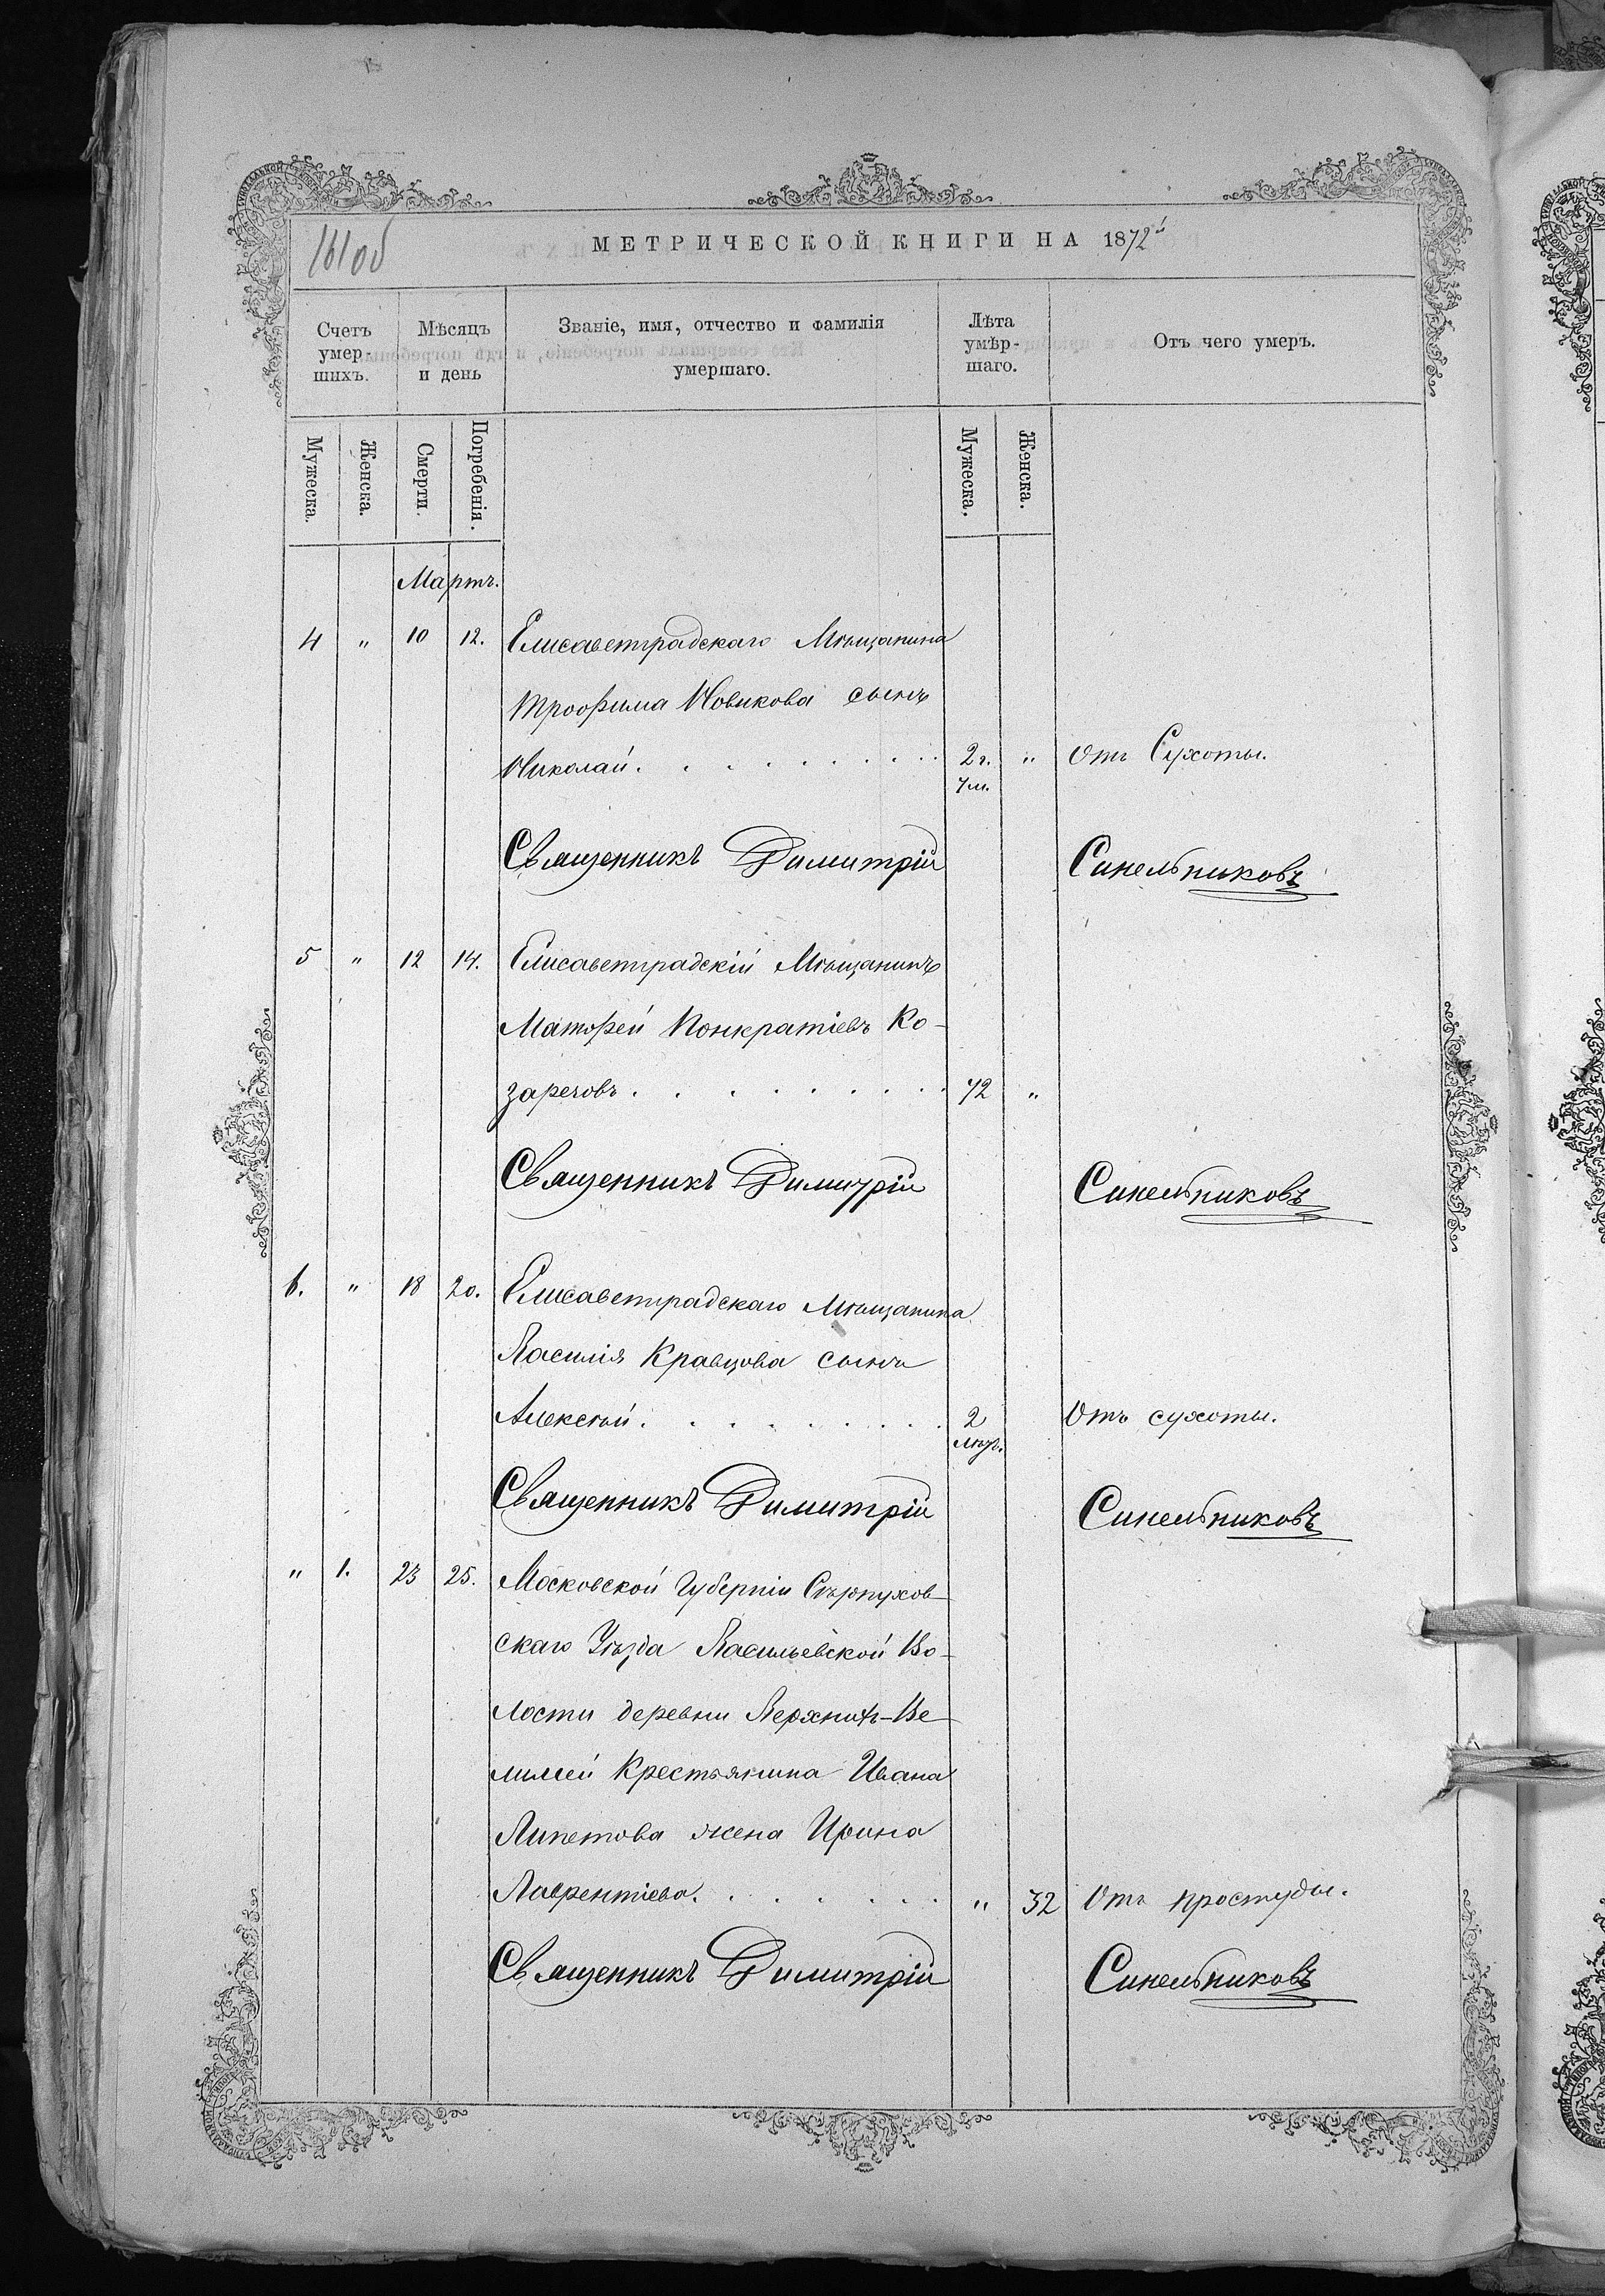 161об
МЕТРИЧЕСКОЙ КНИГИ НА 1872й
Счетъ умер-шихъ.
Мѣсяцъ и день
Званіе, имя, отчество и фамилія умершаго.
Лѣта умѣр-шаго.
Отъ чего умеръ.
Мужеска. Женска. Смерти. Погребенія. Мужеска. Женска.
Мартъ.
4 " 10 12. Елисаветградскаго Мѣщанина
Трофима Новикова сынъ
Николай. 2г. " Отъ Сухоты.
7м.
Священникъ Димитрій Синельниковъ
5 " 12 14. Елисаветградскій Мѣщанинъ
Матфей Понкратіевъ Ко-
заречовъ. 72 "
Священникъ Димитрій Синельниковъ
6. " 18 20. Елисаветградскаго Мѣщанина
Василія Кравцова сынъ
Алексѣй. 2 Отъ сухоты.
Священникъ Димитрій Синельниковъ
" 1. 23 25. Московской Губерніи Сѣрпухов-
скаго Уѣзда Васильевской Во-
лости деревни Верхнихъ-Ве
лимей Крестьянина Ивана
Липетова жена Ирина
Лаврентіева. " 32 Отъ простуды.
Священникъ Димитрій Синельниковъ